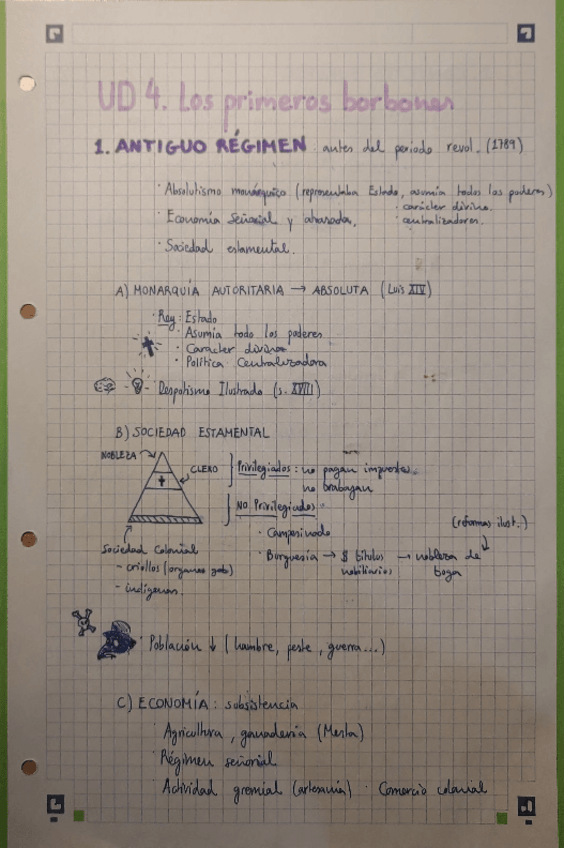 UD 4. Los primeros borbones
1. ANTIGUO RÉGIMEN antes del periodo revol. (1789)
· Absolutismo monárquico (representaba Estado, asumía todos los poderes)
· carácter divino.
· Economía Señorial y atrasada. · centralizadores.
· Sociedad estamental.
A) MONARQUÍA AUTORITARIA → ABSOLUTA (Luis XIV)
· Rey: Estado
· Asumía todo los poderes
· Carácter divino
· Política Centralizadora
· Despotismo Ilustrado (s. XVIII)
B) SOCIEDAD ESTAMENTAL
NOBLEZA
CLERO
Privilegiados: no pagan impuestos.
no trabajan
No Privilegiados.
· Campesinado
(reformas ilust.)
· Burguesía → $ títulos nobiliarios → nobleza de toga
Sociedad Colonial
- criollos (organos gob)
- indígenas.
· Población ↓ (hambre, peste, guerra...)
C) ECONOMÍA: subsistencia
· Agricultura, ganadería (Mesta)
· Régimen señorial
· Actividad gremial (artesanía) · Comercio colonial